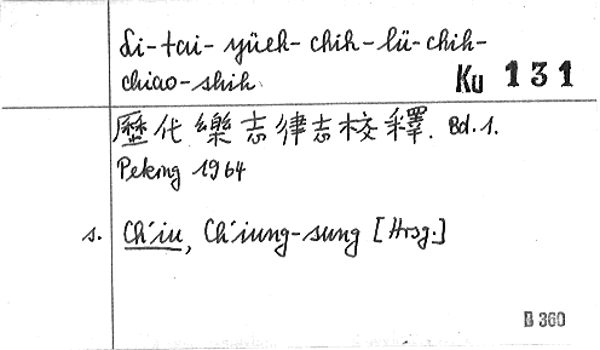 Li-tai-yüeh-chih-lü-chih-
chiao-shih.
Ku 131
歷代樂志律志校釋. Bd. 1.
Peking 1964
s. Ch'iu, Ch'iung-sung [Hrsg.]
B 360